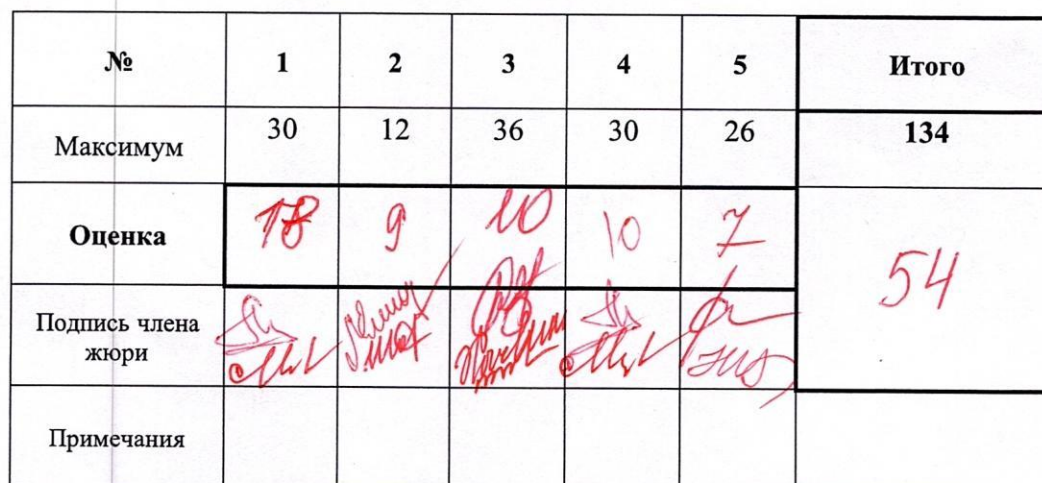 № 1 2 3 4 5 Итого
Максимум 30 12 36 30 26 134
Оценка 18 9 10 10 7 54
Подпись члена
жюри
Примечания